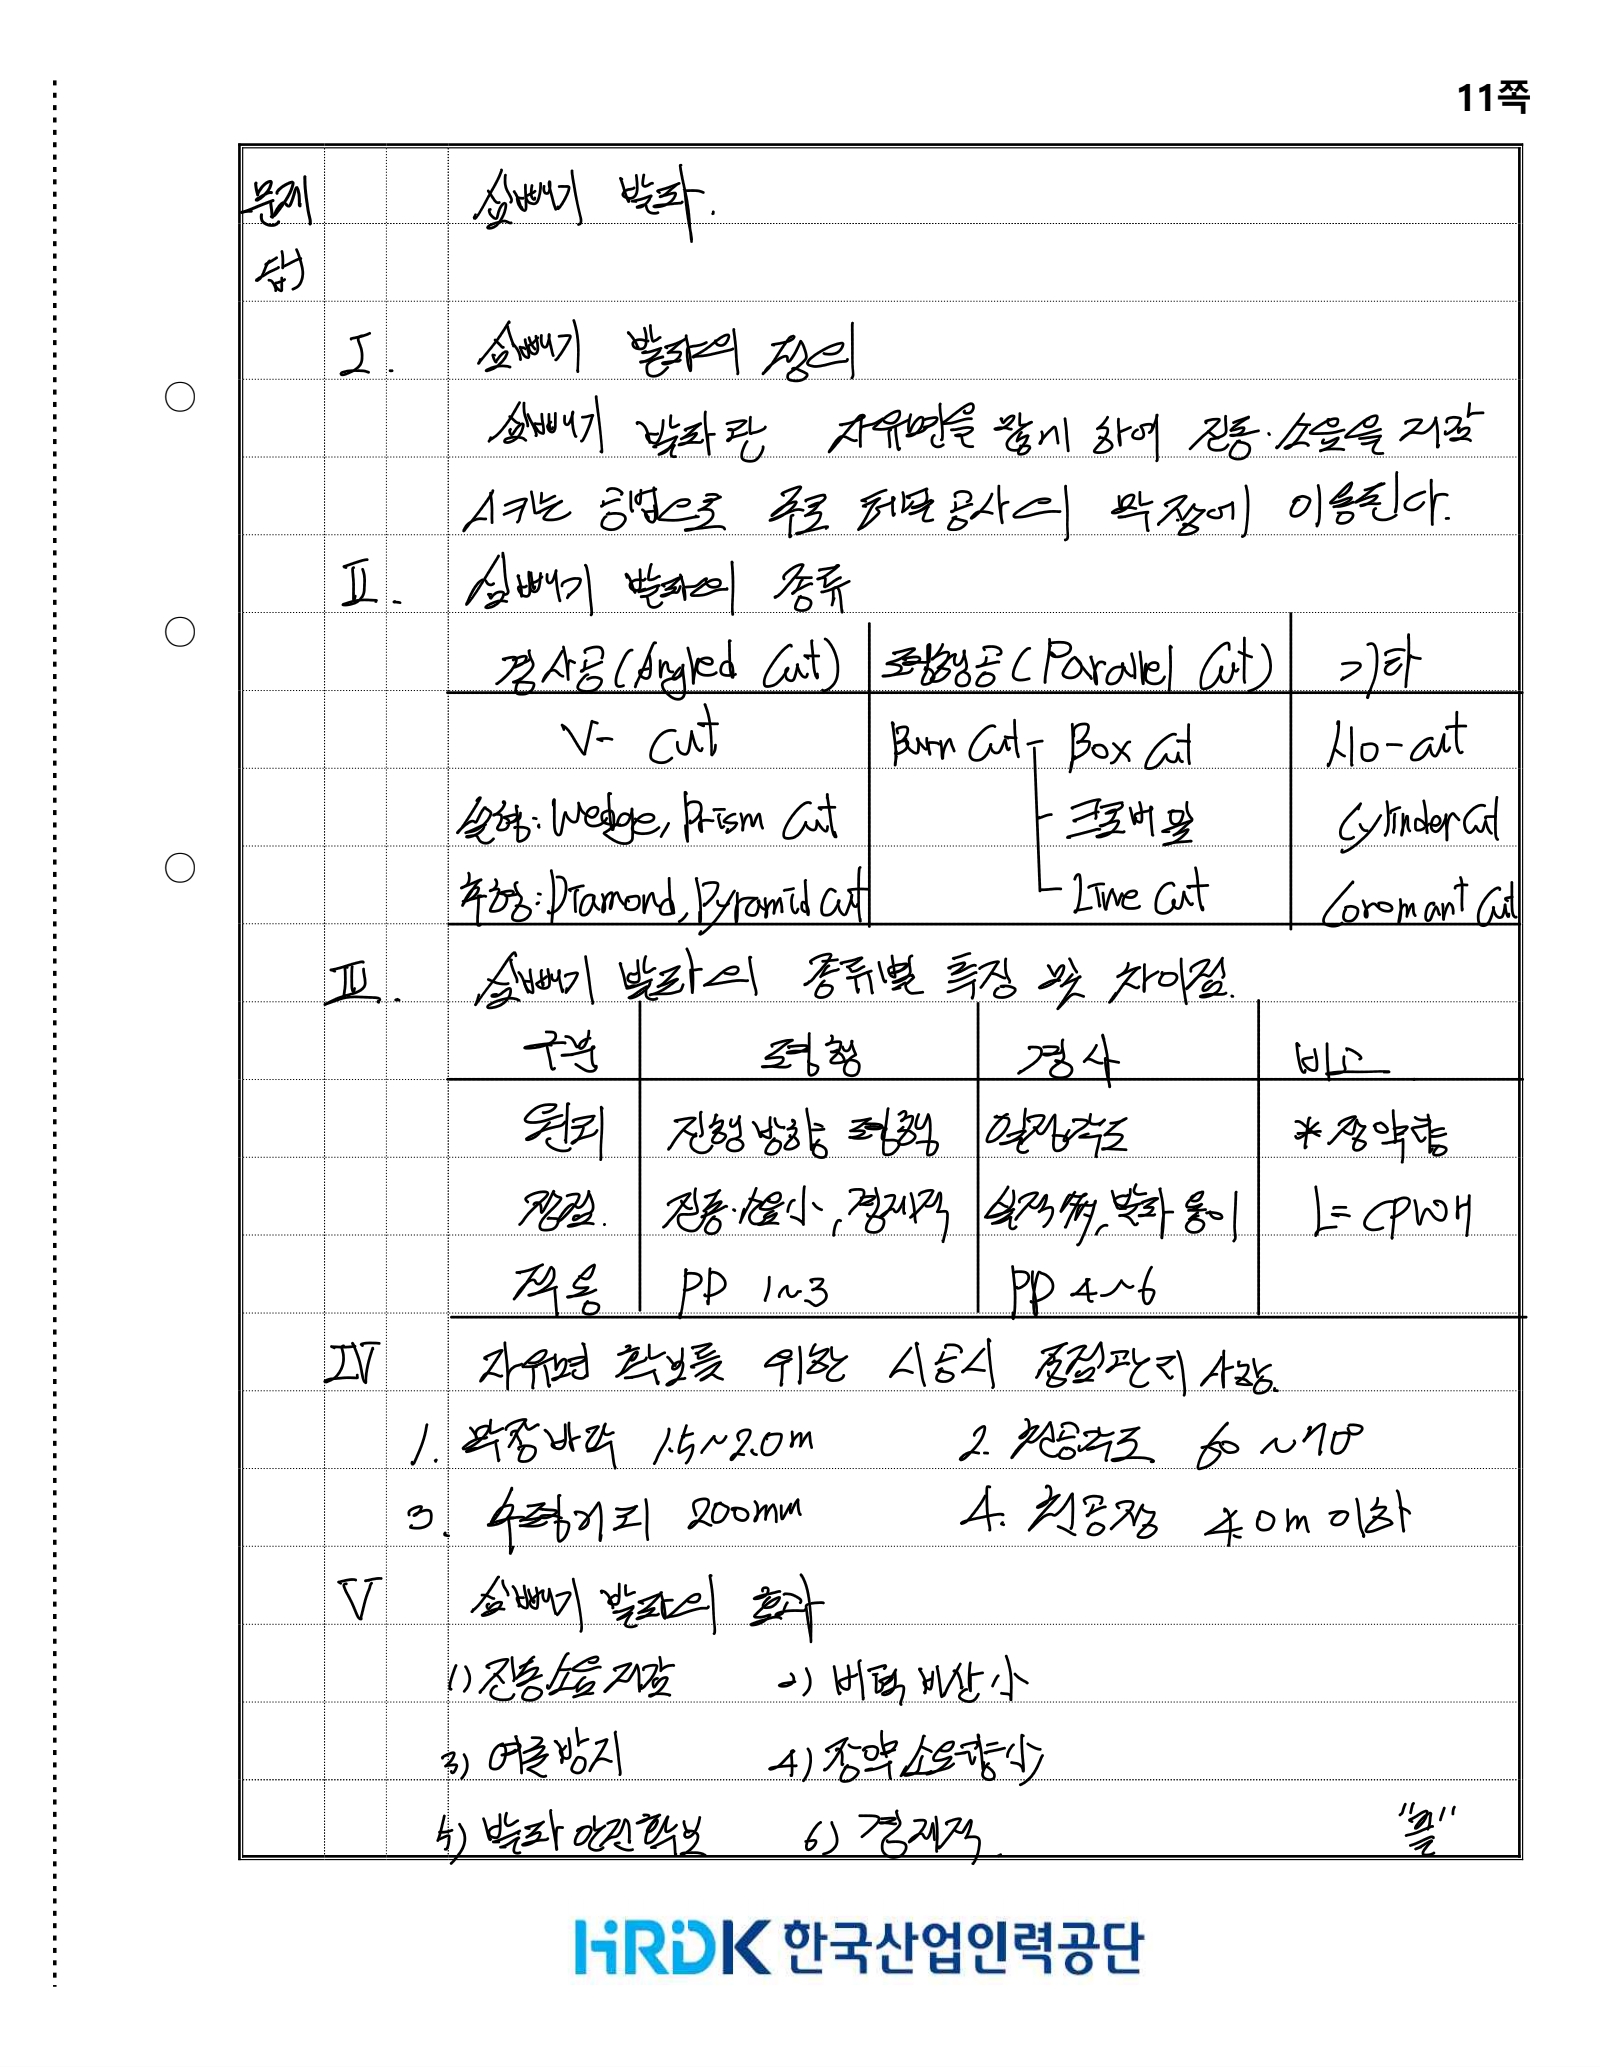 11쪽
문제 심빼기 발파.
답
I. 심빼기 발파의 정의
심빼기 발파란 자유면을 많게 하여 진동·소음을 저감
시키는 공법으로 주로 터널공사의 막장에 이용된다.
II. 심빼기 발파의 종류
경사공(Angled Cut) 평행공(Parallel Cut) 기타
V- cut Burn Cut - Box Cut No-cut
설형: Wedge, Prism Cut 크로버몰 Cylinder Cut
추형: Diamond, Pyramid Cut Line Cut Coromant Cut
III. 심빼기 발파의 종류별 특징 및 차이점.
구분 평행 경사 비고
원리 진행방향 평행 일정각도 *장약량
장점. 진동·소음小, 경제적 실적 多, 발파 용이 L=
적용 PD 1~3 PD 4~6
IV 자유면 확보를 위한 시공시 중점관리 사항.
1. 막장바닥 1.5~2.0m 2. 천공각도 60~70°
3. 수평거리 200mm 4. 천공장 4.0m 이하
V 심빼기 발파의 효과
1) 진동소음 저감 2) 버력 비산 小
3) 여굴방지 4) 장약소요량小
5) 발파 안전확보 6) 경제적. "끝"
HRDK 한국산업인력공단